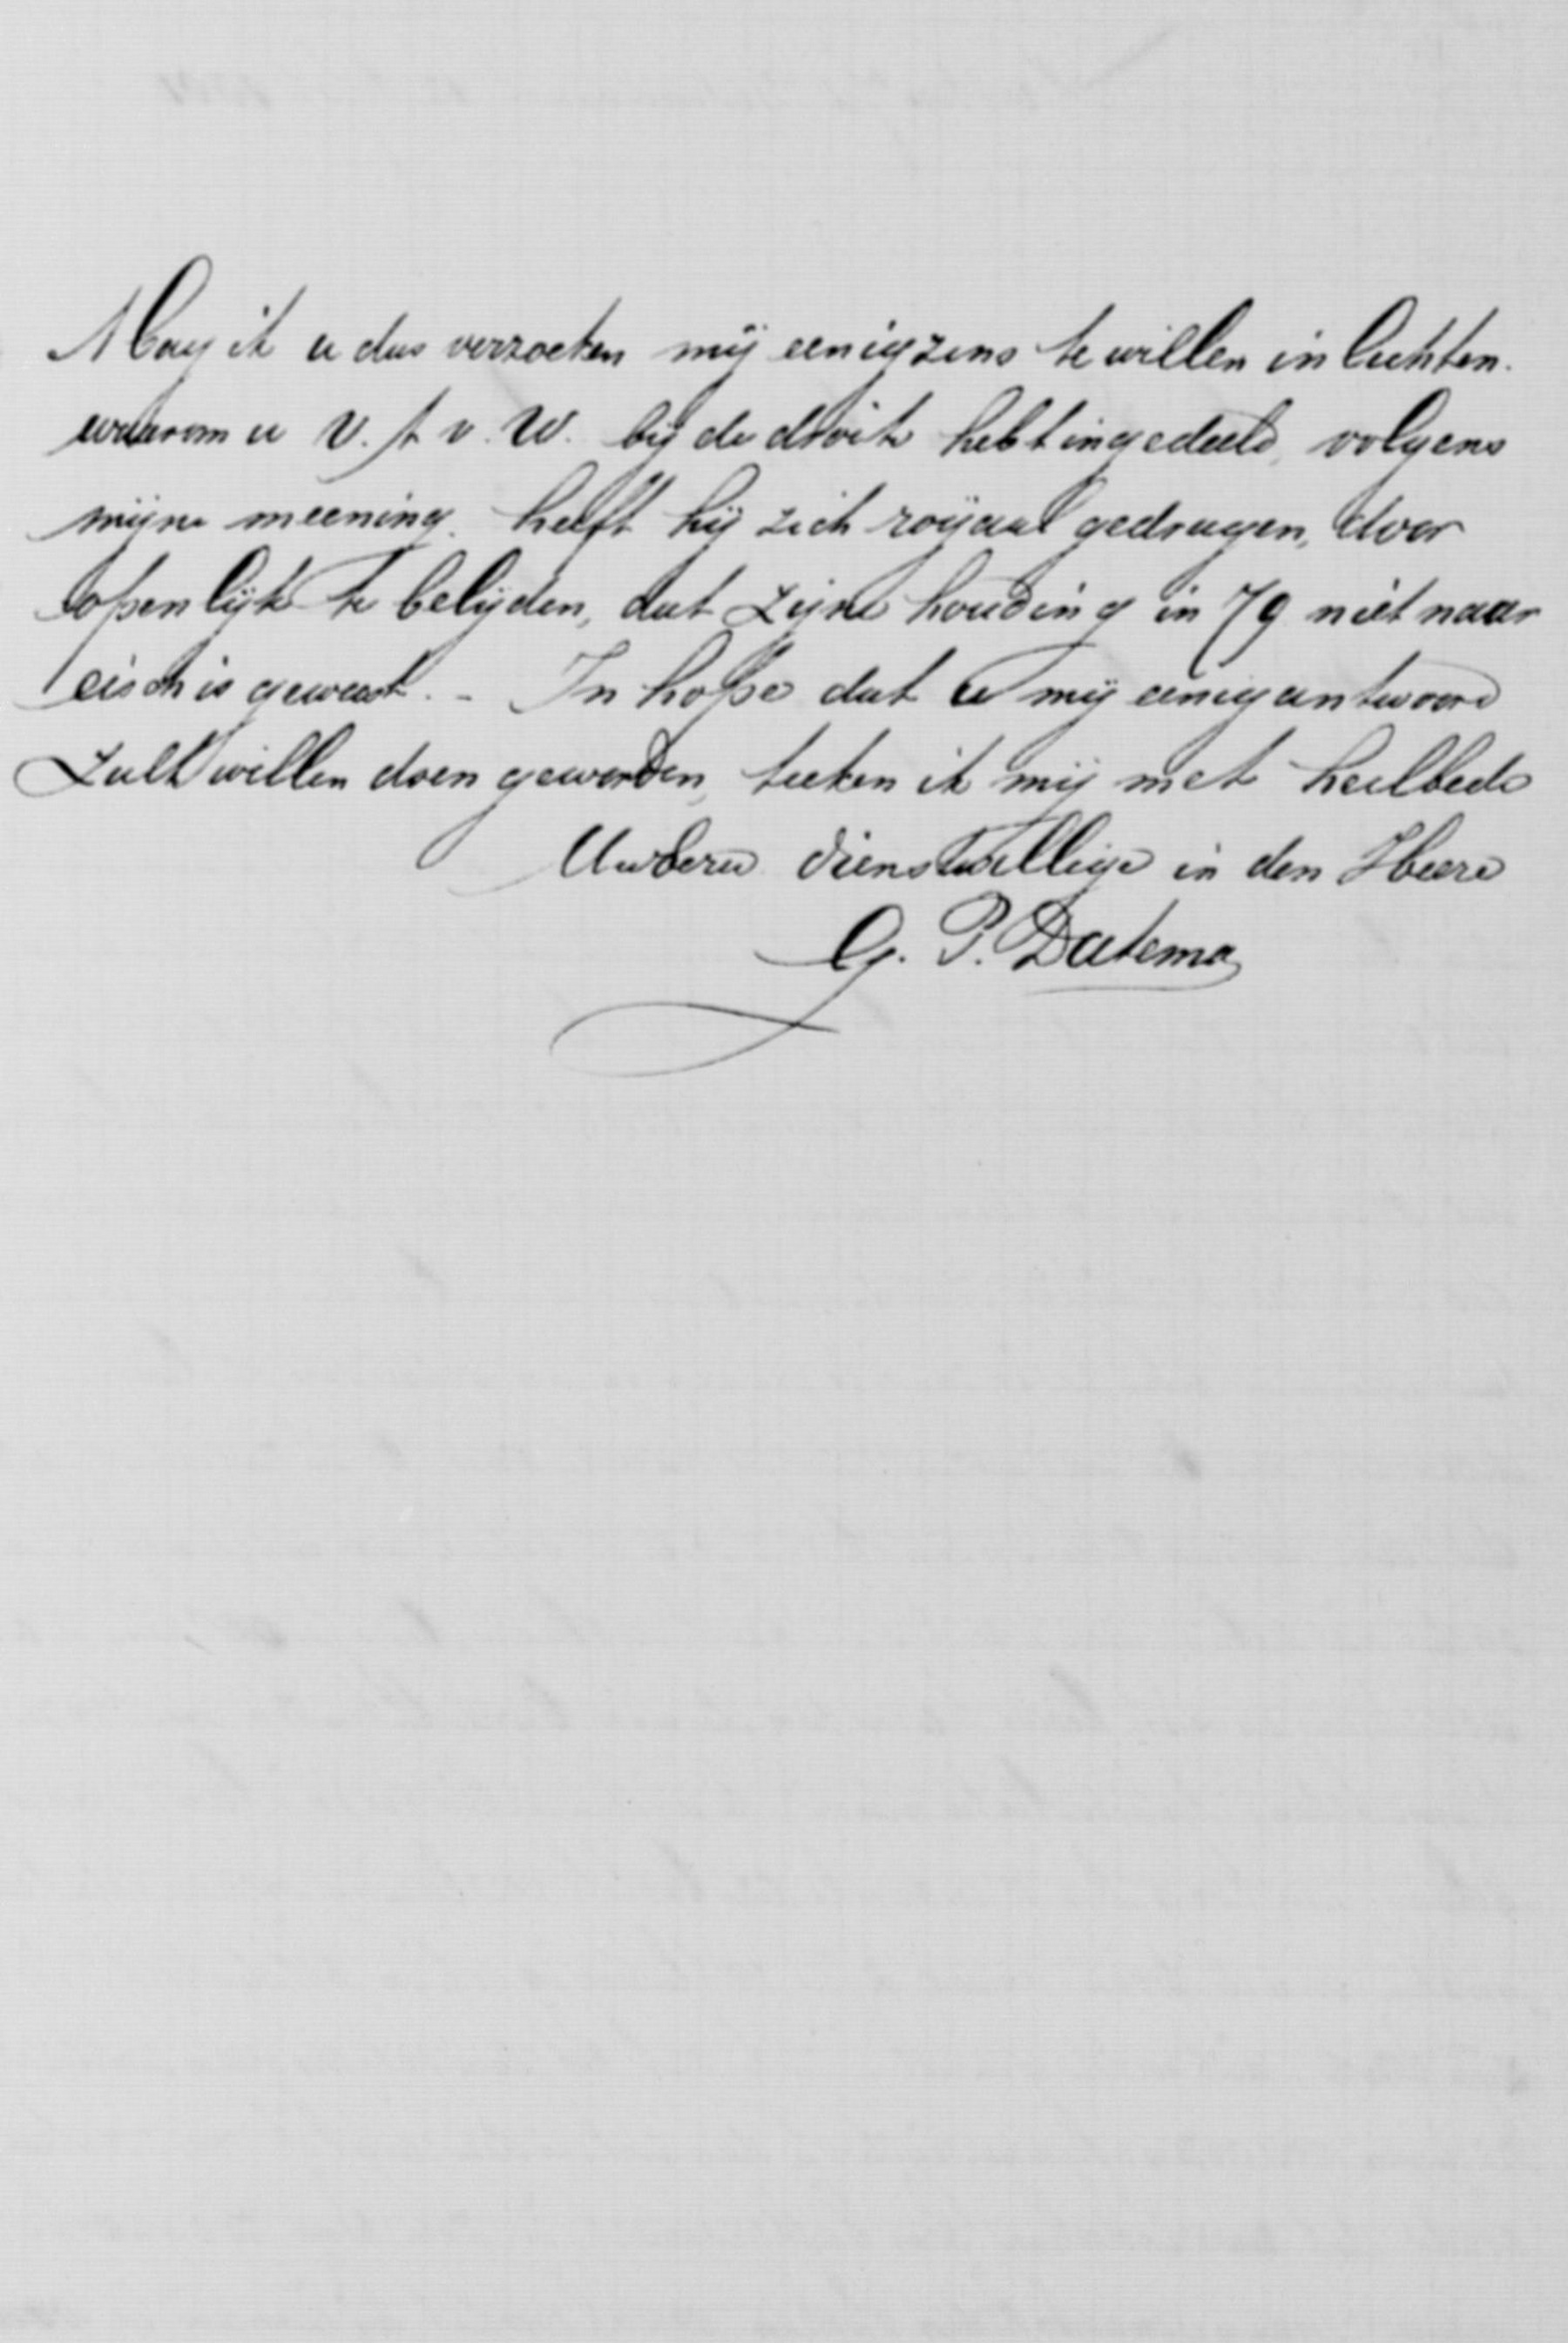 Mag ik u dus verzoeken mij eenigzins te willen inlichten.
waarom u V. t. v. W. bij de droite hebt ingedeeld, volgens
mijne meening. heeft hij zich royaal gedragen, door
openlijk te belijden, dat zijne houding in 79 niet naar
eisch is geweest. - In hope dat u mij eenig antwoord
zult willen doen geworden, teeken ik mij met heilbede
Uwdern dienstwillige in den Heere
G. P. Datema